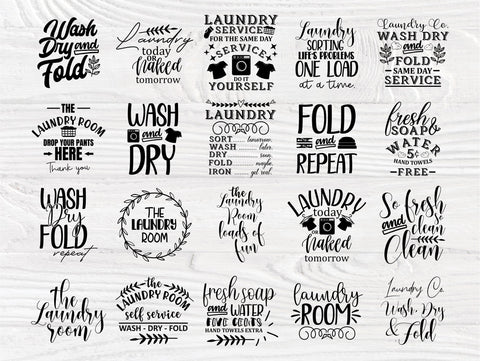 Wash
Dry and
Fold
Laundry
today
OR
Naked
tomorrow
LAUNDRY
SERVICE
FOR THE SAME DAY
SERVICE
DO IT
YOURSELF
LAUNDRY
SORTING
LIFE'S PROBLEMS
ONE LOAD
at a time.
Laundry Co.
WASH DRY
and
FOLD
SAME DAY
SERVICE
THE
LAUNDRY ROOM
DROP YOUR PANTS
HERE
Thank you
WASH
and
DRY
LAUNDRY
SORT tomorrow.
WASH later.
DRY soon.
FOLD maybe.
IRON get real.
FOLD
and
REPEAT
fresh
SOAP &
WATER
5¢
HAND TOWELS
FREE
WASH
Dry
FOLD
repeat
THE
LAUNDRY
ROOM
the
Laundry
Room
loads of
fun
LAUNDRY
today
OR
Naked
tomorrow
So fresh
and so
clean
Clean
the
Laundry
room
THE
LAUNDRY ROOM
self service
WASH - DRY - FOLD
fresh soap
and WATER
FIVE CENTS
HAND TOWELS EXTRA
laundry
ROOM
Laundry Co
Wash, Dry
& Fold